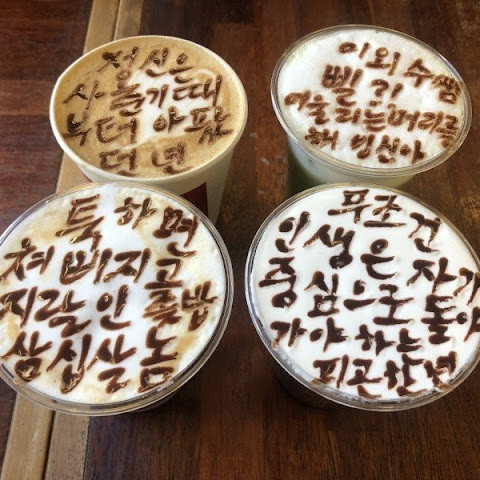 정신은
사춘기때
부터 아팠
던 년
이외수쌤
벨?!
어울리는머리를
해 빙신아
툭하면
쳐삐지고
지랄인
삼십살놈
무조건
인생은 자기
중심으로 돌아
가야 하는
피곤한년